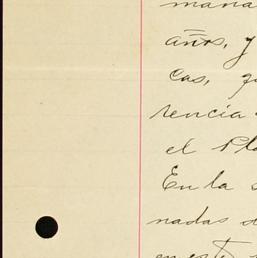 mana
años, y
cas, qu
rencia
el Pla
En la s
nadas d
en este